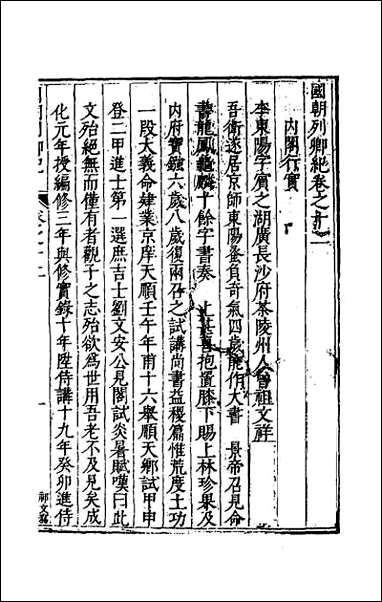 國朝列卿紀卷之十一
內閣行實
李東陽字賓之湖廣長沙府茶陵州人曾祖文詳
吾衛遂居京師東陽蚤負奇氣四歲能作大書 景帝召見命
書龍鳳龜麟十餘字書奏 上甚喜抱置膝下賜上林珍果及
內府寶鏹六歲八歲復兩召之試講尚書益稷篇惟荒度土功
一段大義命肄業京庠天順壬午年甫十六舉順天鄉試甲申
登二甲進士第一選庶吉士劉文安公見閣試炎暑賦嘆曰此
文殆絕無而僅有者觀子之志殆欲為世用吾老不及見矣成
化元年授編修三年與修實錄十年陞侍講十九年癸卯進侍